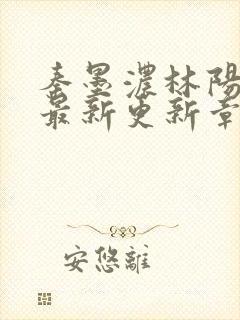 秦墨濃林陽
最新更新章
安悠離